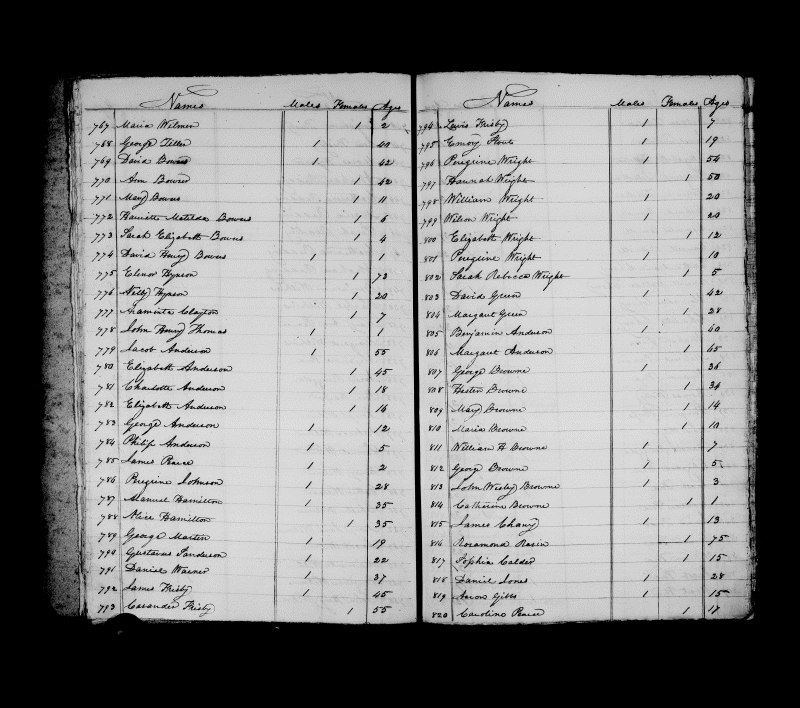 Names Males Females Ages
767 Maria Wilmer 1 2
768 George Tiller 1 40
769 David Bowers 1 42
770 Ann Bowers 1 42
771 Mary Bowers 1 11
772 Harriette Matilda Bowers 1 6
773 Sarah Elizabeth Bowers 1 4
774 David Henry Bowers 1 1
775 Elenor Hynson 1 73
776 Nelly Hynson 1 20
777 Araminta Clayton 1 7
778 John Henry Thomas 1 1
779 Jacob Anderson 1 55
780 Elizabeth Anderson 1 45
781 Charlotte Anderson 1 18
782 Elizabeth Anderson 1 16
783 George Anderson 1 12
784 Philip Anderson 1 5
785 James Pearce 1 2
786 Peregrine Johnson 1 28
787 Manuel Hamilton 1 35
788 Alice Hamilton 1 35
789 George Marten 1 19
790 Gustavus Sanderson 1 22
791 Daniel Warner 1 37
792 James Frisby 1 45
793 Casander Frisby 1 55
Names Males Females Ages
794 Lewis Frisby 1 7
795 Emory 1 19
796 Peregrine Wright 1 54
797 Hannah Wright 1 50
798 William Wright 1 20
799 Wilson Wright 1 24
800 Elizabeth Wright 1 12
801 Peregrine Wright 1 10
802 Sarah Rebecca Wright 1 5
803 David Green 1 42
804 Margaret Green 1 28
805 Benjamin Anderson 1 60
806 Margaret Anderson 1 65
807 George Browne 1 36
808 Hester Browne 1 34
809 Mary Browne 1 14
810 Maria Browne 1 10
811 William H Browne 1 7
812 George Browne 1 5
813 John Wesley Browne 1 3
814 Catharine Browne 1 1
815 James Chany 1 13
816 Rosamond Rasin 1 75
817 Sophia Calder 1 15
818 Daniel Jones 1 28
819 Aaron Gibbs 1 15
820 Caroline Pearce 1 17